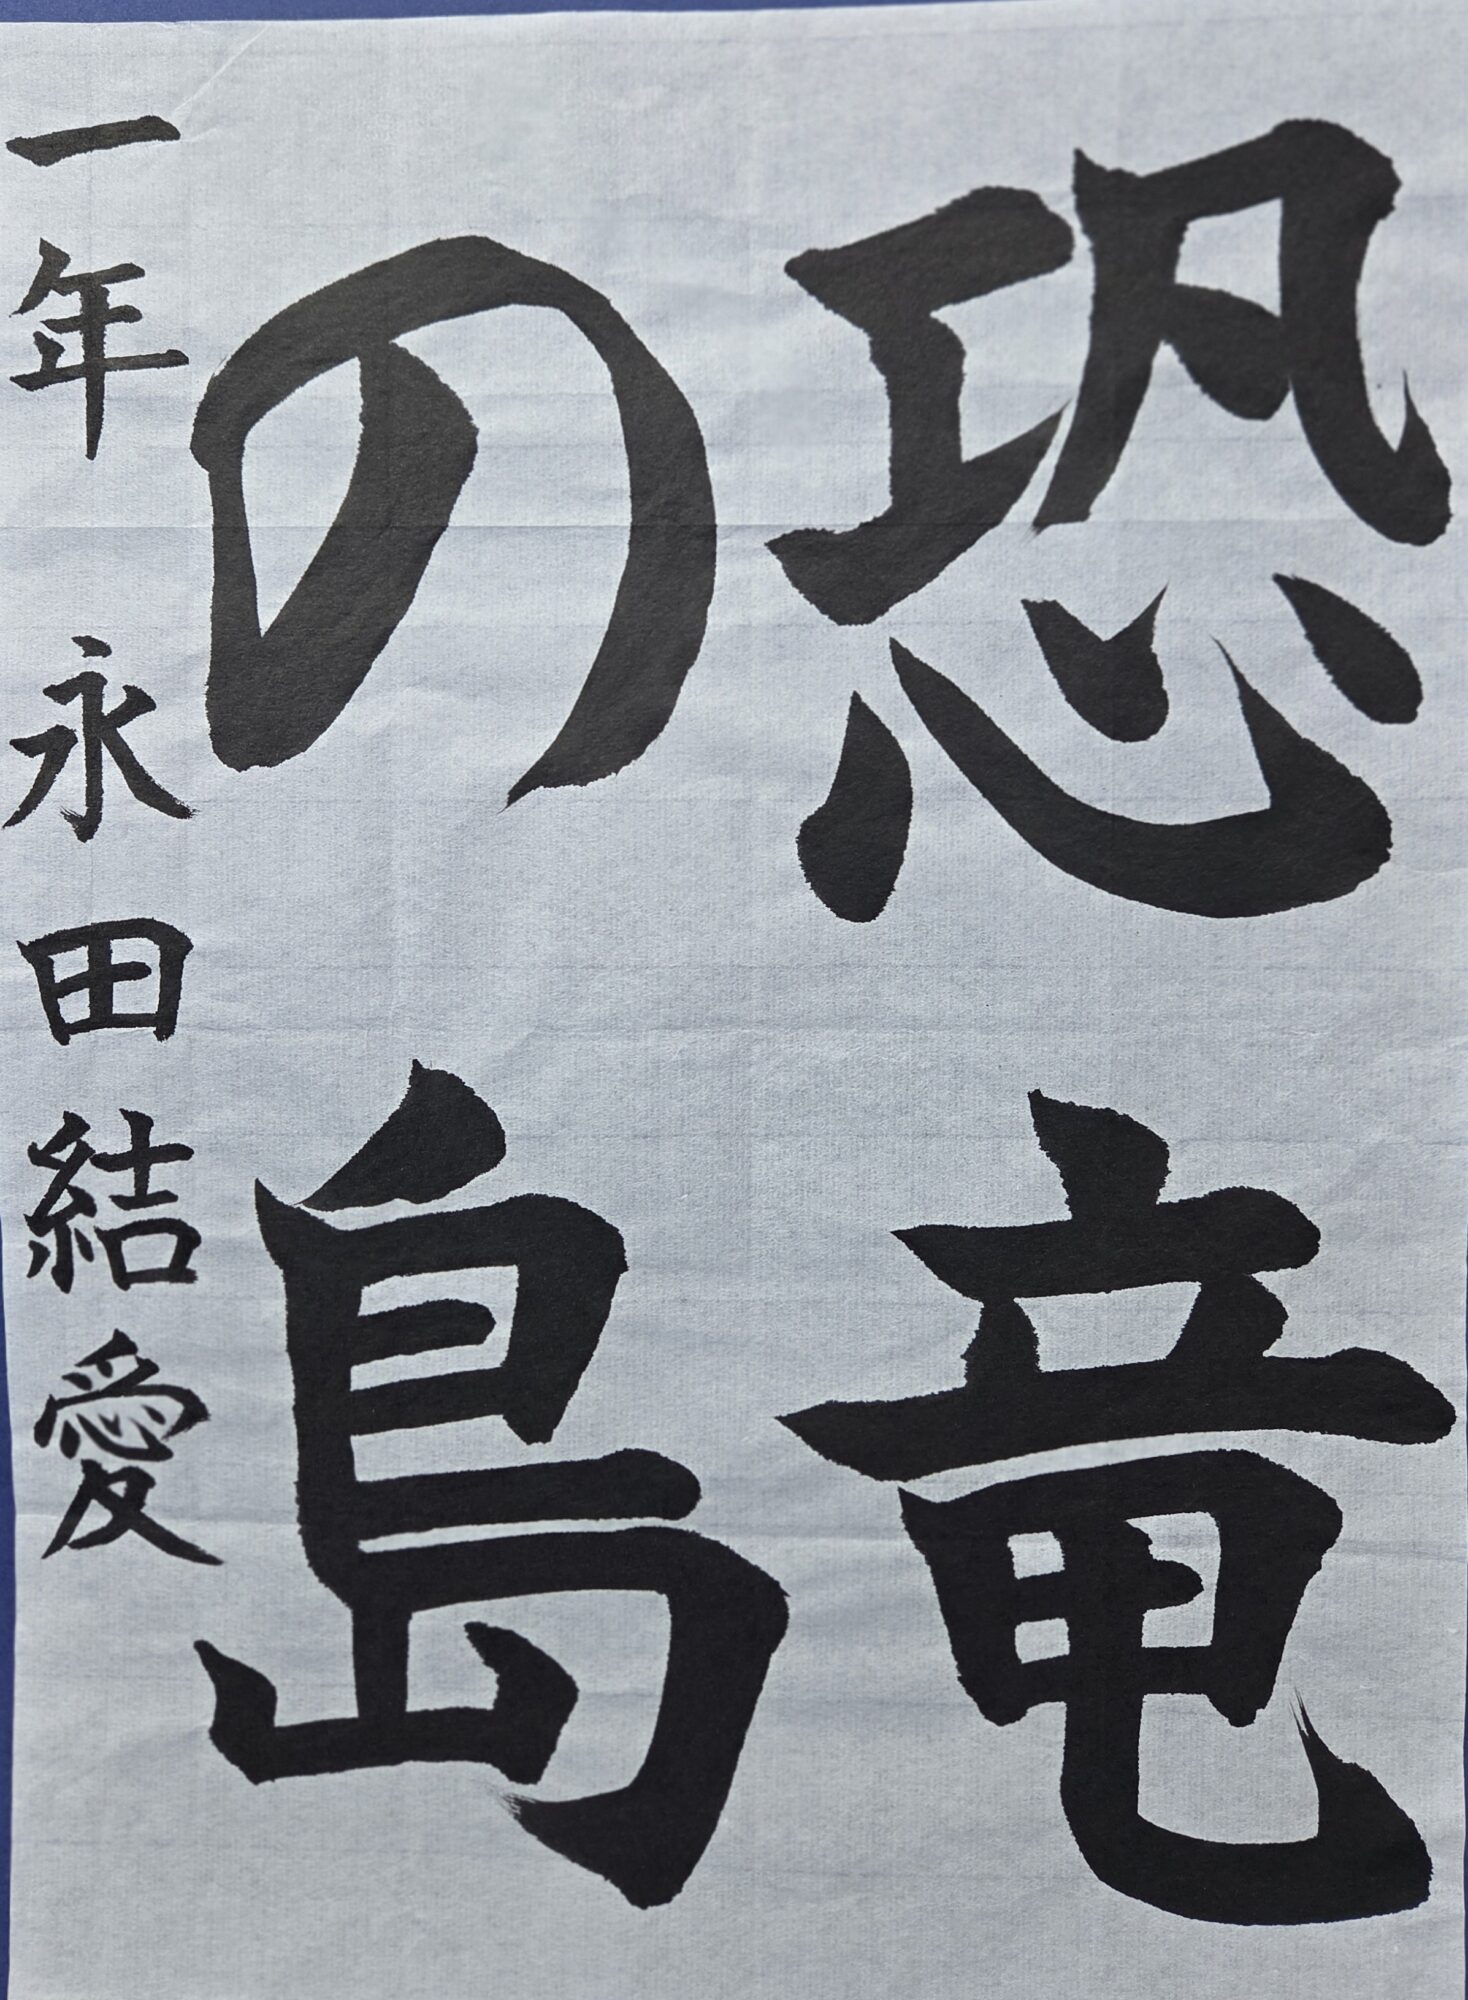 恐竜
の島
一年 永田結愛